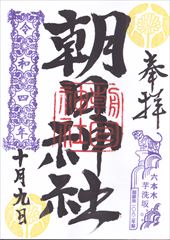 奉拝
六本木
芋洗坂
朝日神社
令和四年
十月九日